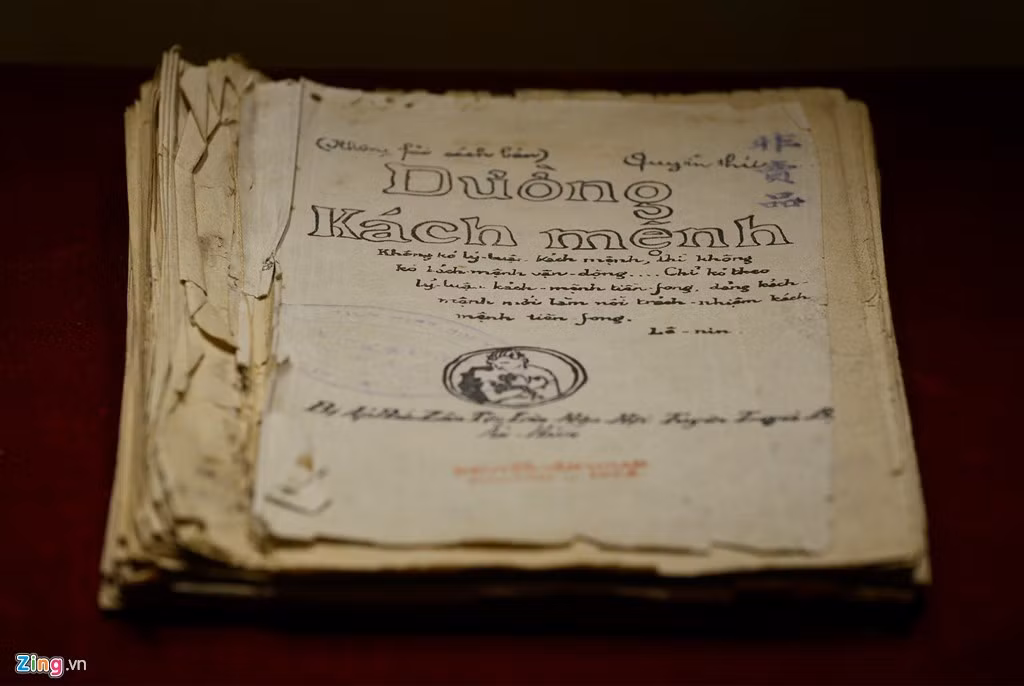 (Không fải sách bán)
Quyển thứ
非賣品
Đường
Kách mệnh
Không kó lý-luận kách mệnh, thì không
kó kách mệnh vận-động.... Chỉ kó theo
lý-luận kách-mệnh tiền-fong, đảng kách-
mệnh mới làm nổi trách-nhiệm kách
mệnh tiền fong.
Lê-nin.
Bị Áp Bức Dân Tộc Liên Hợp Hội Tuyên Truyền Bộ
Zing.vn